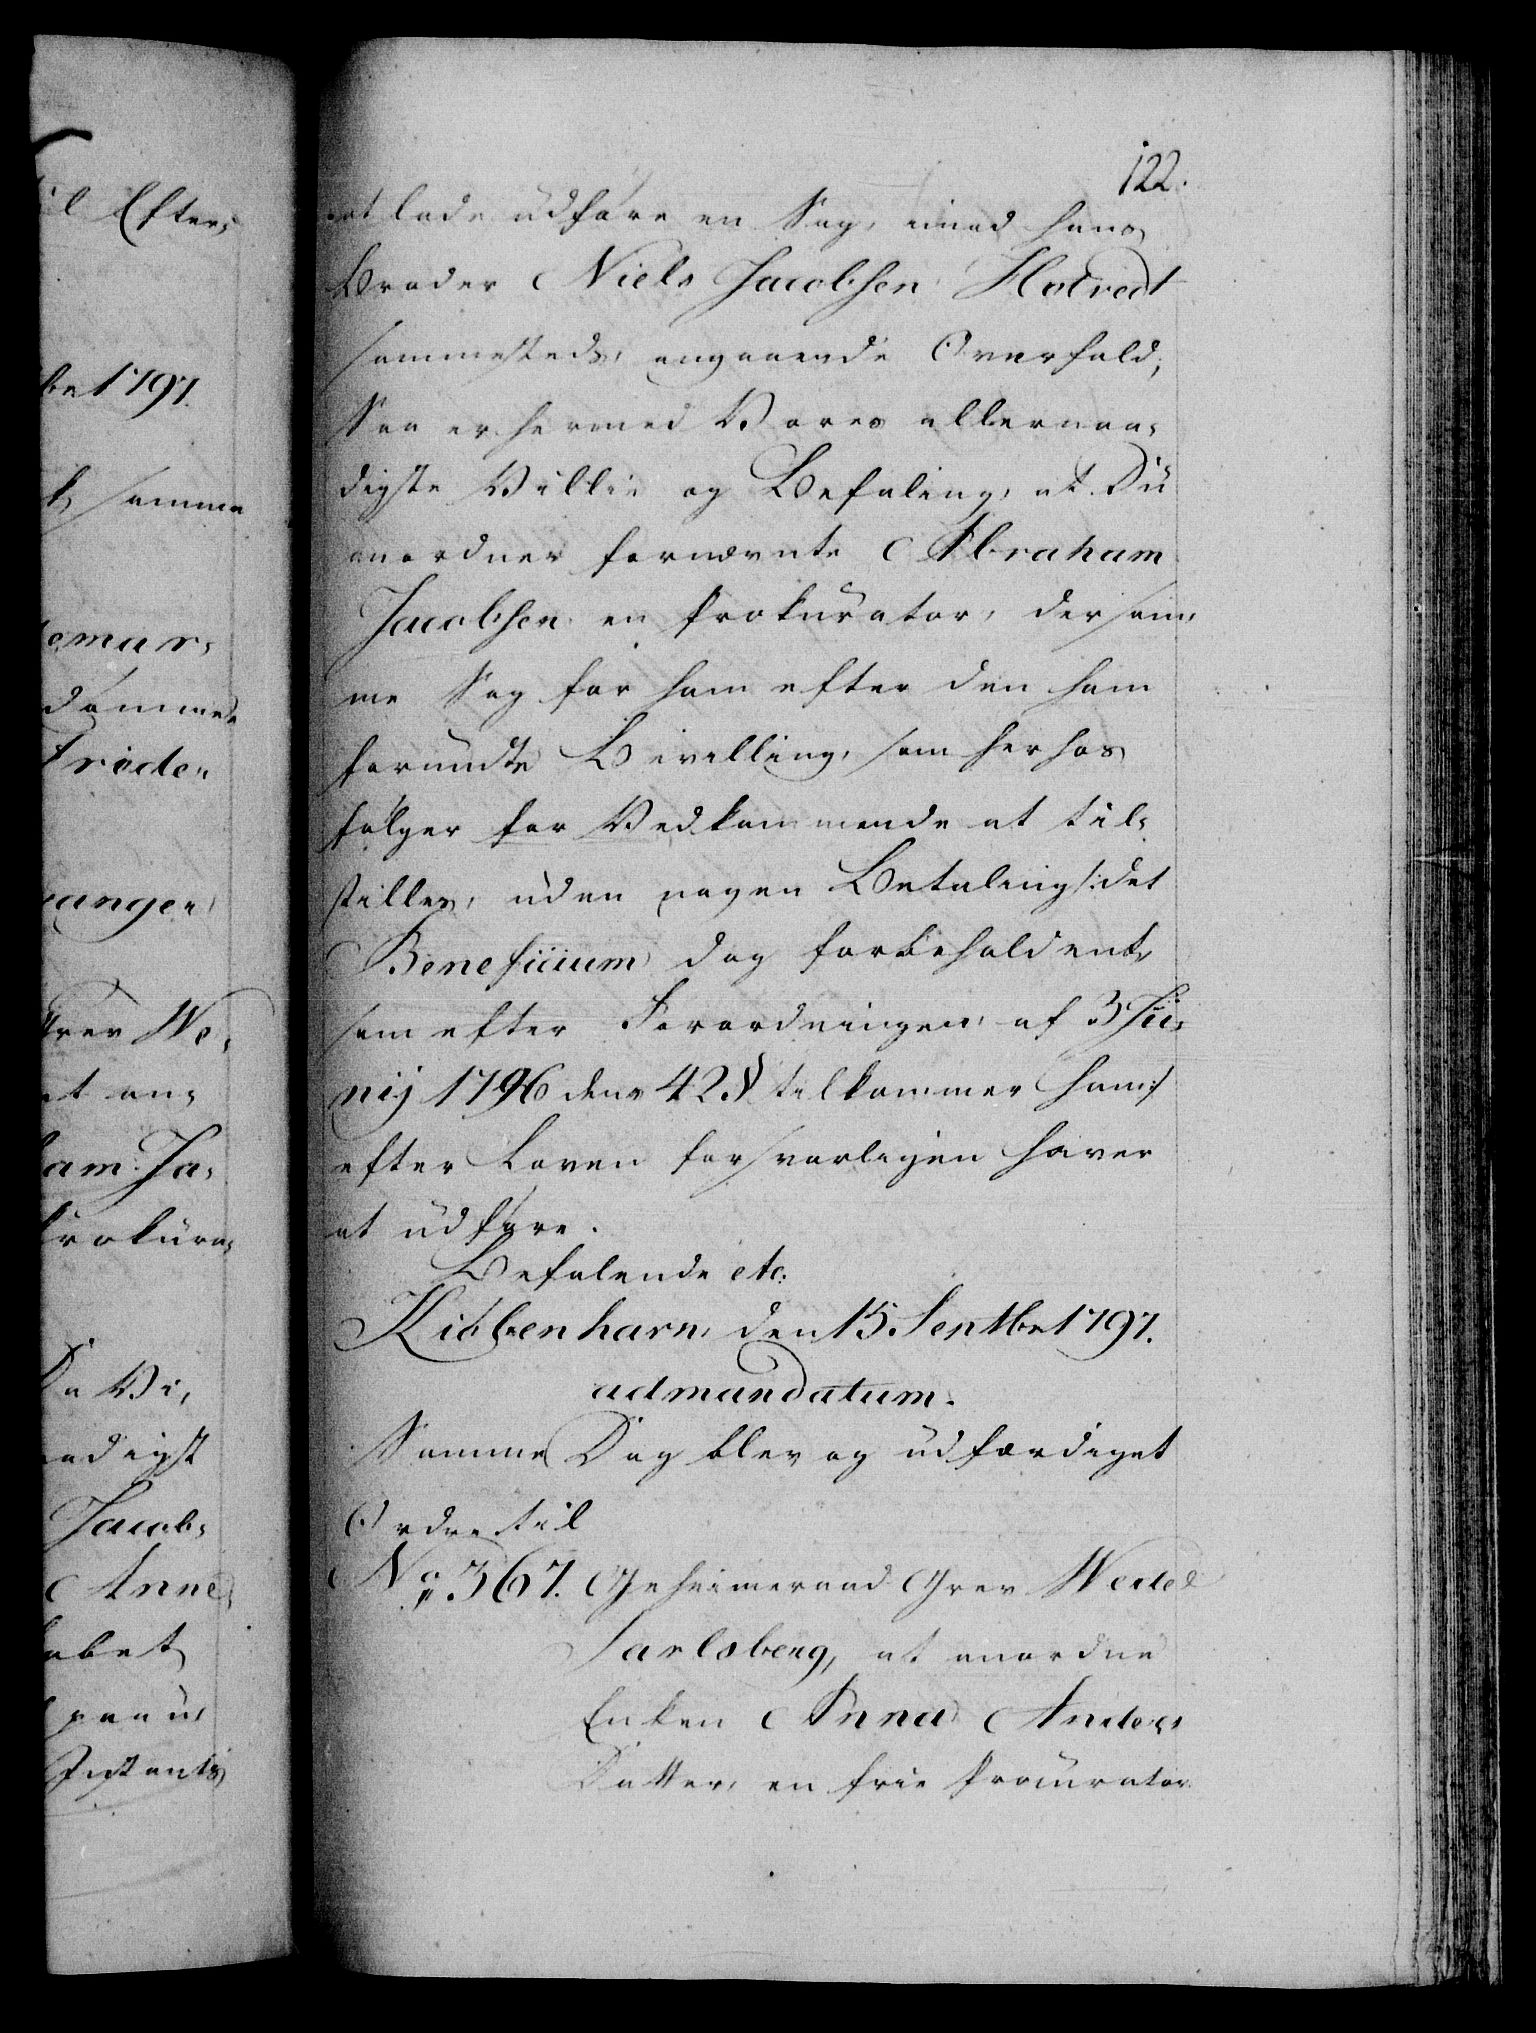 122.
at lade udføre en Sag, imod hans
Broder Niels Jacobsen Holvedt
sammesteds, angaaende Overfald;
Saa er hermed Vores allernaa-
digste Villie og Befaling, at Du
anordner fornævnte Abraham
Jacobsen en Prokurator, der sam-
me Sag for ham efter den ham
forundte Bevilling, som herhos
følger for Vedkommende at til-
stilles, uden nogen Betaling /: det
Beneficium dog forbeholdent,
som efter Forordningen af 3 Ju-
nij 1796 dens 42 § tilkommer ham :/
efter Loven forsvarligen haver
at udføre.
Befalende etc:
Kiøbenhavn, den 15 Septbr 1797.
ad mandatum.
Samme Dag blev og udfærdiget
Ordre til
No 367. Geheimeraad Grev Wedel
Jarlsberg, at anordne
Enken Anna Anders
Datter, en frie Procurator
il Efter-
br 1797.
samme
dømmes
Grev We-
at an-
ham Ja-
Prokura-
Da Vi,
naadigst
Jacob-
Anne